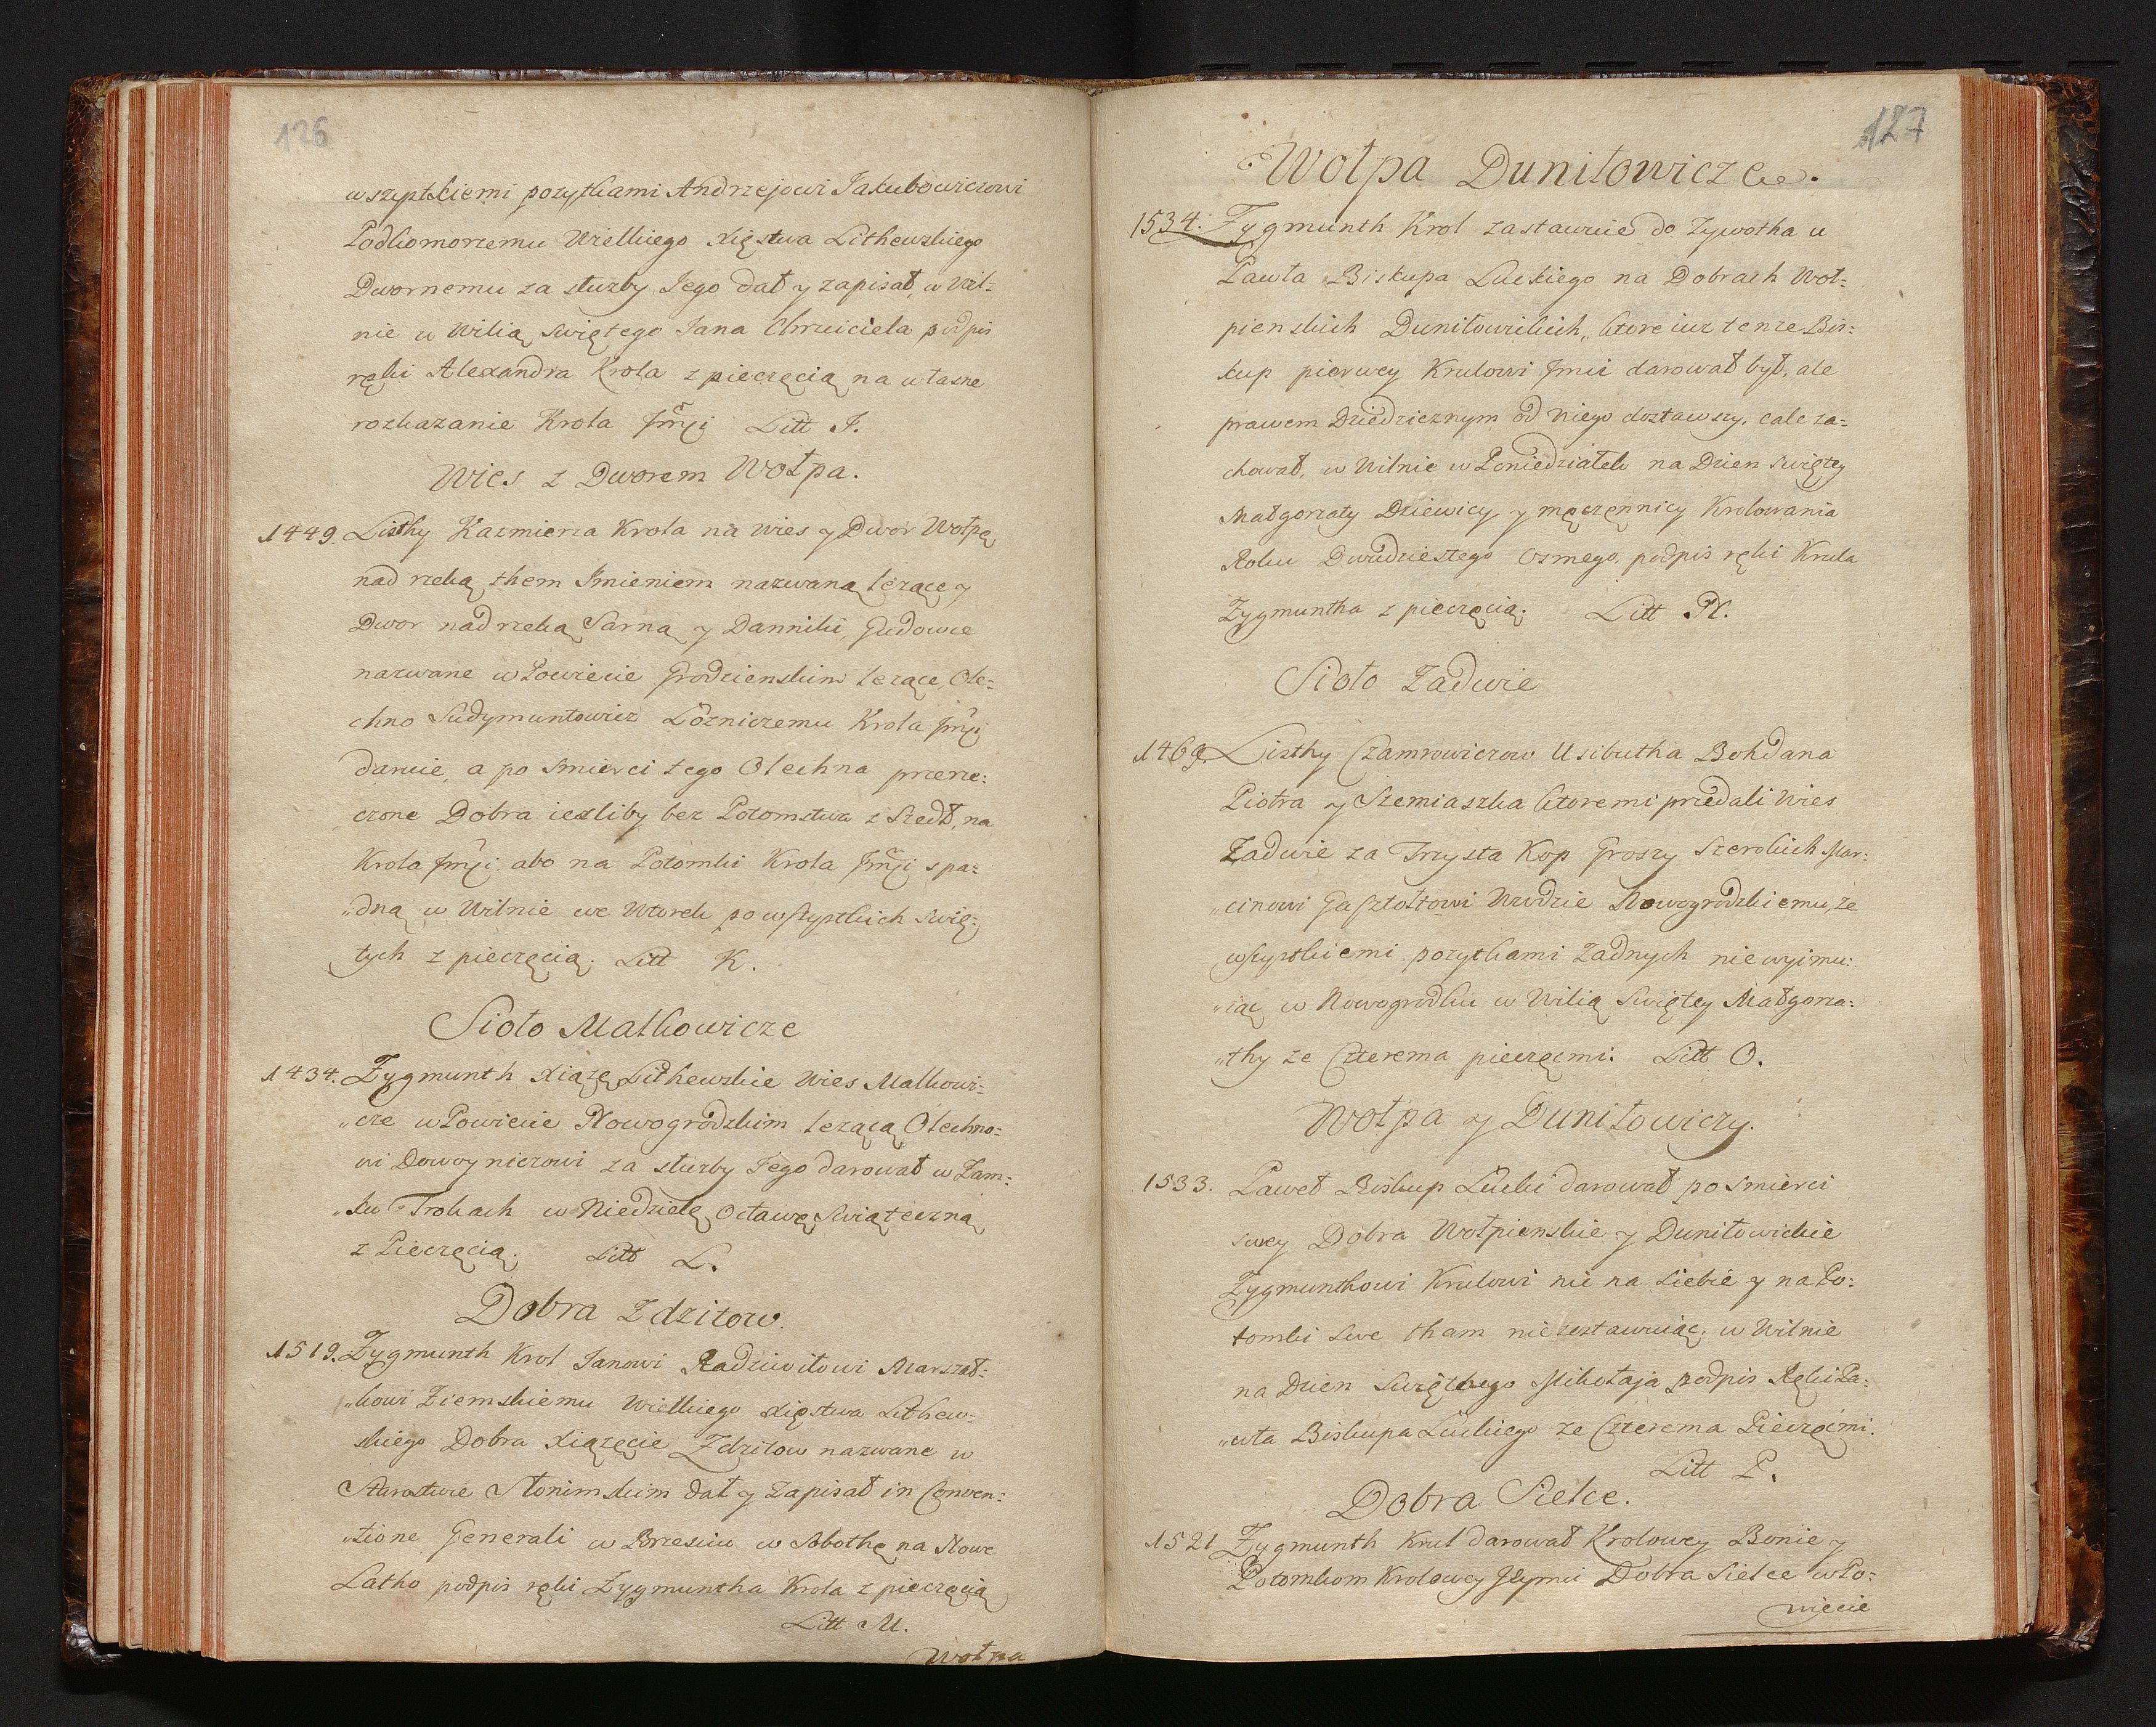 126
wszystkiemi pozytkami Andrzejowi Jakubowiczowi
Podkomorzemu Wielkiego Xięstwa Lithewskiego
Dwornemu za służby Jego dał y zapisał, w Wil=
nie w Wilią Swiętego Jana Chrziciela podpis
ręki Alexandra Krola z pieczęcią na własne
rozkazanie Krola Jmći Litt J.
Wies z Dworem Wołpa.
1449. Listhy Kazmierza Krola na wies y Dwor Wołpę
nad rzeką them Imieniem nazwaną leżące y
Dwor nad rzeką Sarną y Danniki, Gudowie
nazwane w Powiecie Grodzienskim leżące, Ole=
chno Sudymuntowicz Łozniczemu Krola Jmći
darwie, a po smierci tego Olechna przerze=
czone Dobra iezliby bez Potomstwa z Szedł, na
Krola Jmći abo na Potomki Krola Jmći spa=
"dną w Wilnie we Wtorek po wszystkich Swię=
tych z pieczęcią. Litt K.
Sioło Malkowicze
1434. Zygmunth Xiąże Lithewskie Wies Malkowi=
"cze w Powiecie Nowogrodzkim leżącą Olechno=
wi Dowoyniczowi za służby Jego darował w Zam=
"ku Trokach w Niedzielę Octawę Swiąteczną
z Pieczęcią. Litt L.
Dobra Zdzitow.
1519. Zygmunth Krol Janowi Radziwiłowi Marszał=
"kowi Ziemskiemu Wielkiego Xięstwa Lithew=
skiego Dobra Xiązęcie Zdzitow nazwane w
Starostwie Słonimskim dał y zapisał in Conven=
"tione Generali w Brzesciu w Sobothę na Nowe
Latho podpis ręki Zygmuntha Krola z pieczęcią
Litt M.
Wołpa
127
Wołpa Duniłowicze.
1534. Zygmunth Krol zastawuie do Zywotha u
Pawła Biskupa Luckiego na Dobrach Woł=
pienskich Duniłowickich, ktore iuz tenze Bis=
kup pierwey Krulowi Jmći darował był, ale
prawem Dziedzicznym od niego dostawszy, cale za=
chował, w Wilnie w Poniedziałek na Dzien Swiętey
Małgorzaty Dziewicy y męczęnnicy Krolowania
Roku Dwudziestego Osmego, podpis ręki Krula
Zygmuntha z pieczęcią. Litt N.
Sioło Zadwie
1469. Listhy Czamrowiczow Usibutha Bohdana
Piotra y Szemiaszka ktoremi przedali Wies
Zadwie za Trzysta Kop Groszy Szerokich Mar=
"cinowi Gasztołtowi Nwodzie Nowogrodzkiemu, ze
wszystkiemi pozytkami Zadnych nie wyimu=
"iąc w Nowogrodku w Wilią Swiętey Małgorza=
"thy ze Czterema pieczęcmi. Litt O.
Wołpa y Duniłowiczy.
1533. Paweł Biskup Łucki darował po Smierci
swey Dobra Wołpienskie y Duniłowickie
Zygmunthowi Krulowi nic na Siebie y na Po=
tomki swe tham niezostawuiąc. w Wilnie
na Dzien Swięthego Mikołaja podpis Ręki Pa=
"wła Biskupa Łuckiego ze Czterema Pieczęcmi.
Litt P.
Dobra Sielce.
1521 Zygmunth Krul darował Krolowey Bonie y
Potomkom Krolowey Jeymci Dobra Sielce w Po=
wiecie